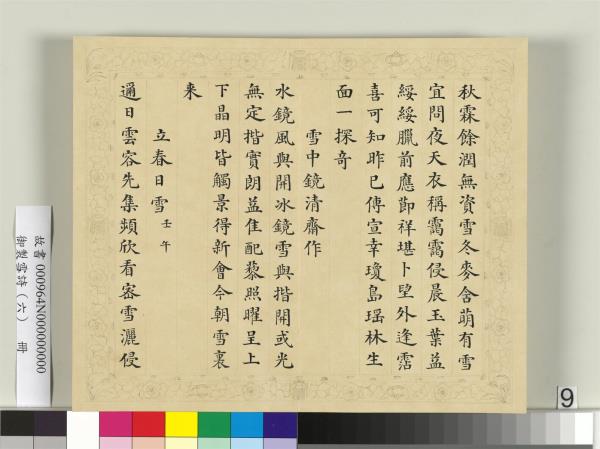 秋霖餘潤無資雪冬麥含萌有雪
宜問夜天衣稱靄靄侵晨玉葉益
綏綏臘前應節祥堪卜望外逢霑
喜可知昨已傳宣幸瓊島瑶林生
面一探奇
雪中鏡清齋作
水鏡風與開冰鏡雪與揩開或光
無定揩實朗益佳配藜照曜呈上
下晶明皆觸景得新會今朝雪裏
来
立春日雪 壬午
邇日雲容先集頻欣看密雪灑侵
故書 000964N000000000
御製雪詩（六） 冊
9